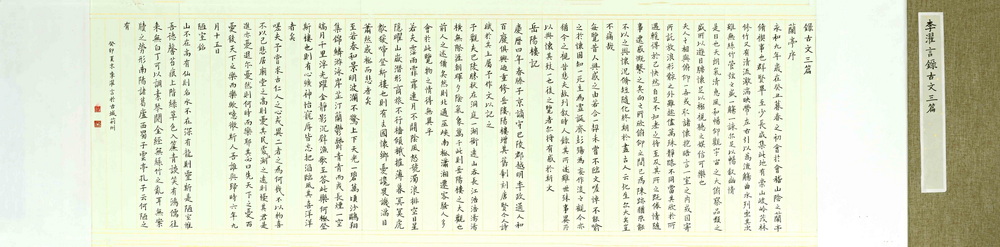 錄古文三篇
蘭亭序
永和九年歲在癸丑暮春之初會於會稽山陰之蘭亭
脩禊事也群賢畢至少長咸集此地有崇山峻嶺茂林
脩竹又有清流激湍映帶左右引以為流觴曲水列坐其次
雖無絲竹管弦之盛一觴一詠亦足以暢敘幽情
是日也天朗氣清惠風和暢仰觀宇宙之大俯察品類之
盛所以遊目騁懷足以極視聽之娛信可樂也
夫人之相與俯仰一世或取諸懷抱晤言一室之內或因寄
所託放浪形骸之外雖趣舍萬殊靜躁不同當其欣於所
遇暫得於己快然自足不知老之將至及其所之既倦情隨
事遷感慨係之矣向之所欣俯仰之間已為陳跡猶
不以之興懷況脩短隨化終期於盡古人云死生亦大矣豈
不痛哉
每覽昔人興感之由若合一契未嘗不臨文嗟悼不能喻
之於懷固知一死生為虛誕齊彭殤為妄作後之視今亦
猶今之視昔悲夫故列敘時人錄其所述雖世殊事異所
以興懷其致一也後之覽者亦將有感於斯文
岳陽樓記
慶曆四年春滕子京謫守巴陵郡越明年政通人和
百廢俱興迺重修岳陽樓增其舊制刻唐賢今人詩
賦於其上屬予作文以記之
予觀夫巴陵勝狀在洞庭一湖銜遠山吞長江浩浩湯湯
橫無際涯朝暉夕陰氣象萬千此則岳陽樓之大觀也
前人之述備矣然則北通巫峽南極瀟湘遷客騷人多
會於此覽物之情得無異乎
若夫霪雨霏霏連月不開陰風怒號濁浪排空日星
隱曜山岳潛形商旅不行檣傾楫摧薄暮冥冥虎
嘯猿啼登斯樓也則有去國懷鄉憂讒畏譏滿目
蕭然感極而悲者矣
至若春和景明波瀾不驚上下天光一碧萬頃沙鷗翔
集錦鱗游泳岸芷汀蘭郁郁青青而或長煙一空
皓月千里浮光躍金靜影沉璧漁歌互答此樂何極登
斯樓也則有心曠神怡寵辱皆忘把酒臨風其喜洋洋
者矣
嗟夫予嘗求古仁人之心或異二者之為何哉不以物喜
不以己悲居廟堂之高則憂其民處江湖之遠則憂其君是
進亦憂退亦憂然則何時而樂耶其必曰先天下之憂而
憂後天下之樂而樂歟噫微斯人吾誰與歸時六年九
月十五日
陋室銘
山不在高有仙則名水不在深有龍則靈斯是陋室惟
吾德馨苔痕上階綠草色入簾青談笑有鴻儒往
來無白丁可以調素琴閱金經無絲竹之亂耳無案
牘之勞形南陽諸葛廬西蜀子雲亭孔子云何陋之
有
癸卯夏李濯言於古城荊州
李濯言錄古文三篇